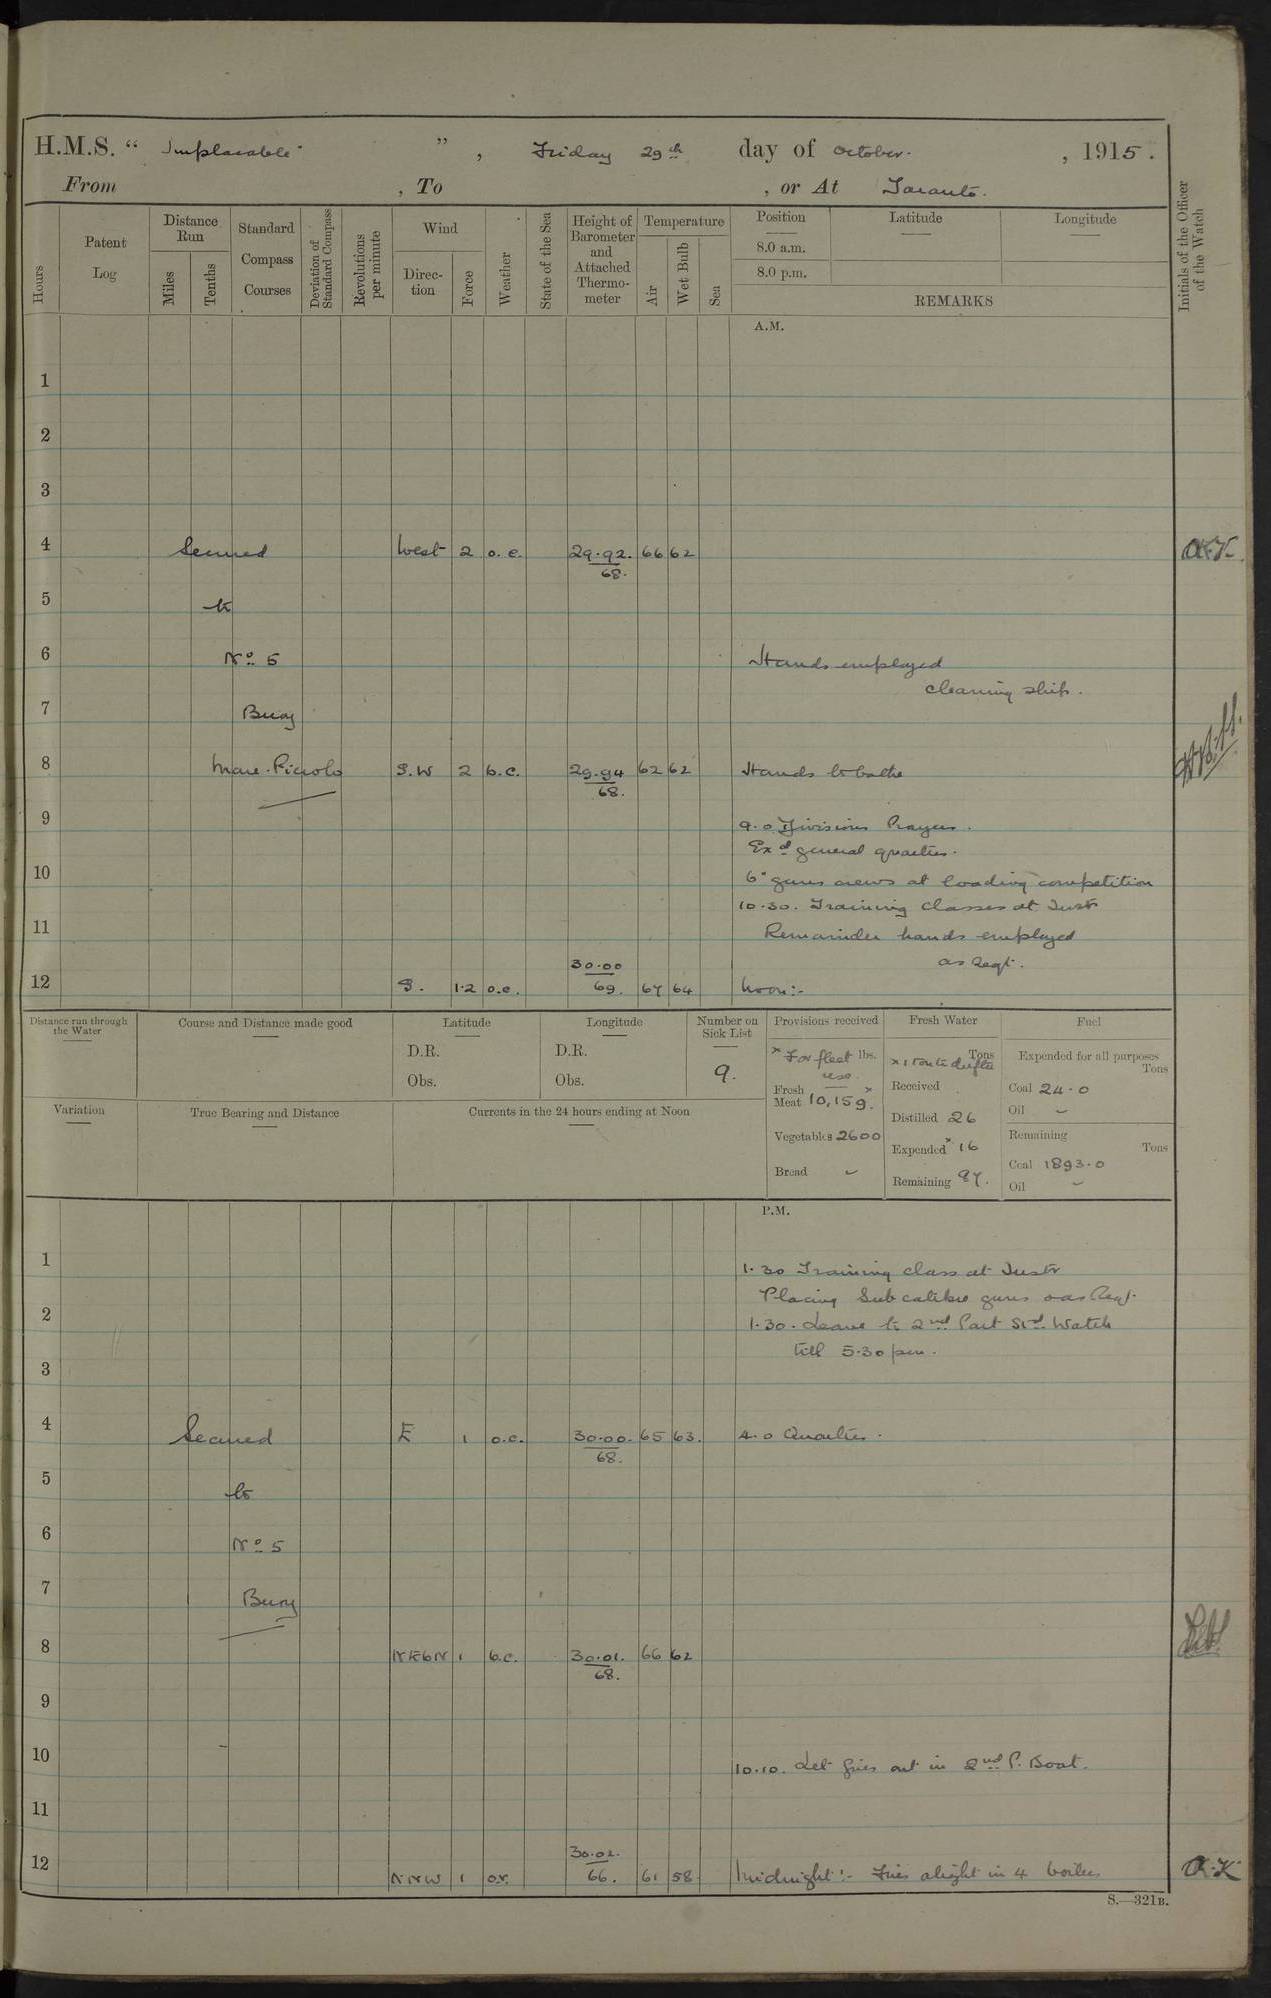 H.M.S. “ Implacable ” , Friday 29th day of October. , 1915.
From , To , or At Taranto.
Hours
Patent Log
Distance Run
Miles
Tenths
Standard Compass Courses
Deviation of Standard Compass
Revolutions per minute
Wind
Direction
Force
Weather
State of the Sea
Height of Barometer and Attached Thermometer
Temperature
Air
Wet Bulb
Sea
Position
8.0 a.m.
8.0 p.m.
Latitude
Longitude
REMARKS
Initials of the Officer of the Watch
A.M.
1
2
3
4 Secured West 2 o.c. 29.92. 66 62
68.
5 to
6 No 5 Hands employed
cleaning ship.
7 Buoy
8 Mare Piccolo S.W 2 b.c. 29.94 62 62 Hands to bathe
68.
9 9.0 Divisions Prayers.
Exd general quarters.
10 6" guns crews at loading competition
10.30. Training Classes at Instr
11 Remainder hands employed
as Reqt.
30.00
12 S. 1.2 o.c. 69. 67 64 Noon:-
Distance run through the Water
Course and Distance made good
Latitude
D.R.
Obs.
Longitude
D.R.
Obs.
Number on Sick List
9.
Provisions received
× For fleet lbs.
use.
Fresh Meat 10,159. ×
Vegetables 2600
Bread
Fresh Water
Tons
Received
Distilled 26
Expended × 16
Remaining 97.
Fuel
Expended for all purposes
Tons
Coal 24.0
Oil
Remaining
Tons
Coal 1893.0
Oil
Variation
True Bearing and Distance
Currents in the 24 hours ending at Noon
P.M.
1 1.30 Training class at Instr
Placing Sub calibre guns as Reqt.
2 1.30. Leave to 2nd Part Stbd Watch
till 5.30 pm.
3
4 Secured E 1 o.c. 30.00. 65 63. 4.0 Quarters.
68.
5 to
6 No 5
7 Buoy
8 NEbN 1 b.c. 30.01. 66 62
68.
9
10 10.10. Let fires out in 2nd P. Boat.
11
30.02.
12 NNW 1 o.r. 66. 61 58 Midnight:- Fires alight in 4 boilers
S.—321B.